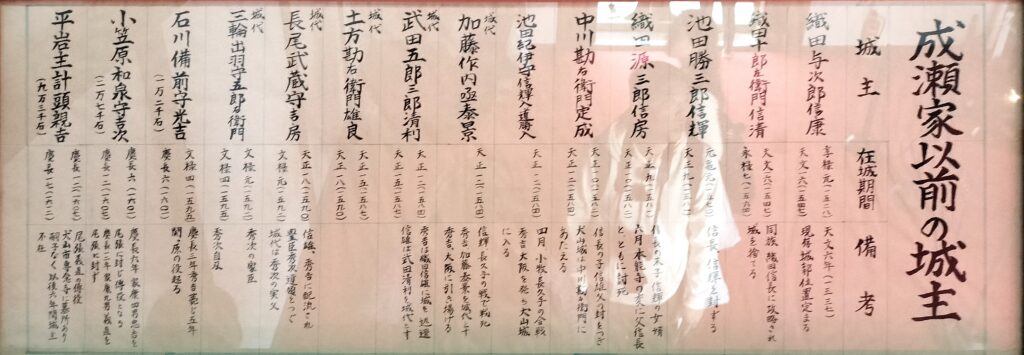 成瀬家以前の城主
城主
在城期間
備考
織田与次郎信康
享禄元(一五二八)
天文一六(一五四七)
天文六年(一五三七)
現在城郭位置定まる
織田十郎左衛門信清
天文一六(一五四七)
永禄七(一五六四)
同族 織田信長に攻略され
城を捨てる
池田勝三郎信輝
元亀元(一五七〇)
天正九(一五八一)
信長、信輝を封ずる
織田源三郎信房
天正九(一五八一)
天正一〇(一五八二)
六月本能寺の変に父信長
とともに討死
中川勘右衛門定成
天正一〇(一五八二)
天正一二(一五八四)
信長の子信雄父の封をつぎ
犬山城は中川勘右衛門に
あたえる
池田紀伊守信輝入道勝入
天正一二(一五八四)
四月 小牧長久手の合戦
秀吉大阪を発ち犬山城
に入る
城代
加藤作内亟泰景
天正一二(一五八四)
信輝長久手の戦で戦死
秀吉、加藤泰景を城代とす
秀吉、大阪に引き揚げる
城代
武田五郎三郎清利
天正一二(一五八四)
天正一五(一五八七)
秀吉は織田信雄に城を返還
信雄は武田清利を城代とす
城代
土方勘右衛門雄良
天正一五(一五八七)
天正一八(一五九〇)
城代
長尾武蔵守吉房
天正一八(一五九〇)
文禄元(一五九二)
信雄、秀吉に配流され
豊臣秀次遺領をつぐ
城代は秀次の実父
城代
三輪出羽守五郎右衛門
文禄元(一五九二)
文禄四(一五九五)
秀次の家臣
秀次自反
石川備前守光吉
(一万二千石)
文禄四(一五九五)
慶長六(一六〇一)
慶長三年秀吉薨ず五年
関ヶ原の役起る
小笠原和泉守吉次
(二万七千石)
慶長六(一六〇一)
慶長一二(一六〇七)
慶長六年 家康四男忠吉を
尾張に封じ傅役となる
慶長一二年家康九男義直を
尾張に封ず
平岩主計頭親吉
(九万三千石)
慶長一二(一六〇七)
慶長一七(一六一二)
尾張義直の傅役
犬山市善光寺に墓所あり
嗣子なく以後六年間城主
不在